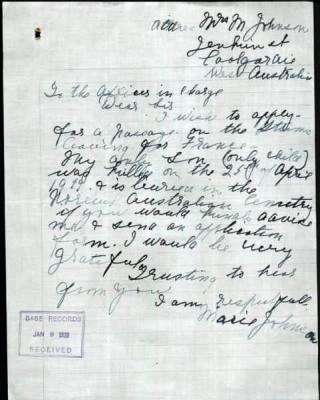 Mrs M Johnson
Jenkin St
Coolgardie
West Australia
To the Officer in Charge
Dear Sir
I wish to apply
for a passage on the
leaving for France
My only Son (only child)
was killed on the April
& is buried in the
Australian Cemetery
if you would kindly advise
me & send an application
form. I would be very
grateful Trusting to hear
from you
I am respectfull
Marie Johnson
BASE RECORDS
JAN
RECEIVED